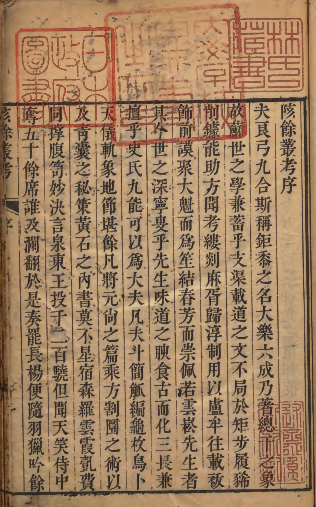 林氏藏書
日本政府圖書
陔餘叢考序
夫艮弓九合斯稱鉅黍之名大樂六成乃著總干之象
故世之學兼蓄乎支渠載道之文不局於矩步履狶
制鐻能助方聞考縷剡麻胥歸淳制用以盧牟往載祓
飾前謨聚大魁而爲笙結春芳而崇佩若雲崧先生者
其今世之深寧叟乎先生味道之腴食古而化三長兼
擅乎史氏九能可以爲大夫凡夫斗簡觚編龜枚鳥卜
天儀象地節堪餘凡將元尚之篇乘方割圜之術以
及靑囊之秘笈黃石之內書莫不星宿森羅雲霞費
同撑腹笥妙決言泉東王投千二百驍但聞天笑侍中
奪五十餘席誰及瀾翻於是奏罷長楊便隨羽獵吟餘
陔餘叢考 序